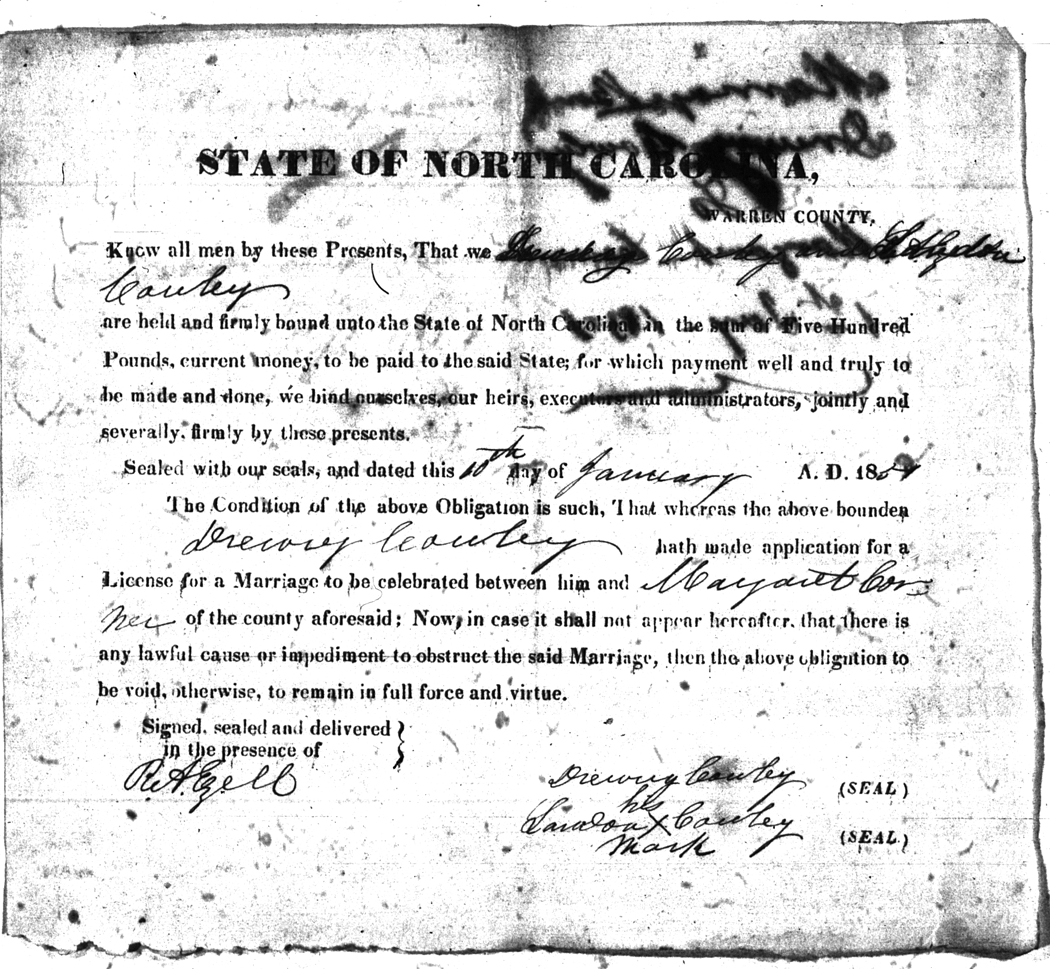 STATE OF NORTH CAROLINA,
WARREN COUNTY.
Know all men by these Presents, That we Drewry Cowley and
Cowley
are held and firmly bound unto the State of North Carolina, in the sum of Five Hundred
Pounds, current money, to be paid to the said State; for which payment well and truly to
be made and done, we bind ourselves, our heirs, executors and administrators, jointly and
severally, firmly by these presents.
Sealed with our seals, and dated this 10th day of January A. D. 18
The Condition of the above Obligation is such, That whereas the above bounden
Drewry Cowley hath made application for a
License for a Marriage to be celebrated between him and Margaret Cor=
ner of the county aforesaid; Now, in case it shall not appear hereafter, that there is
any lawful cause or impediment to obstruct the said Marriage, then the above obligation to
be void, otherwise, to remain in full force and virtue.
Signed, sealed and delivered }
in the presence of
R. A. Ezell
Drewry Cowley (SEAL)
his
Landon X Cowley (SEAL)
mark